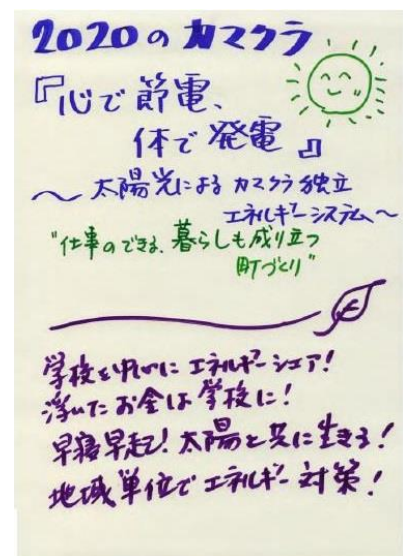 2020のカマクラ
『心で節電、
体で発電』
〜太陽光によるカマクラ独立
エネルギーシステム〜
"仕事のできる、暮らしも成り立つ
町づくり"
学校を中心にエネルギーシェア!
浮いたお金は学校に!
早寝早起!太陽と共に生きる!
地域単位でエネルギー対策!